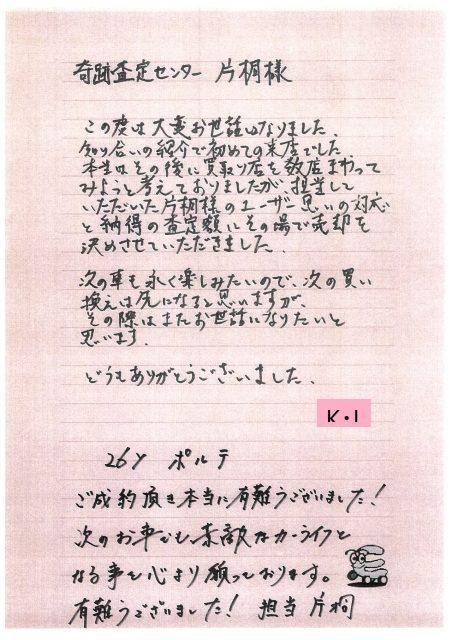 奇跡査定センター 片桐様
この度は大変お世話になりました、
知り合いの紹介で初めての来店でした
本当はその後に買取り店を数店まわって
みようと考えておりましたが、担当して
いただいた片桐様のユーザー思いの対応
と納得の査定額にその場で売却を
決めさせていただきました。
次の車も永く楽しみたいので、次の買い
換えは先になると思いますが、
その際はまたお世話になりたいと
思います.
どうもありがとうございました、
K・I
26Y ポルテ
ご成約頂き本当に有難うございました!
次のお車でも素敵なカーライフと
なる事を心より願っております。
有難うございました! 担当 片桐